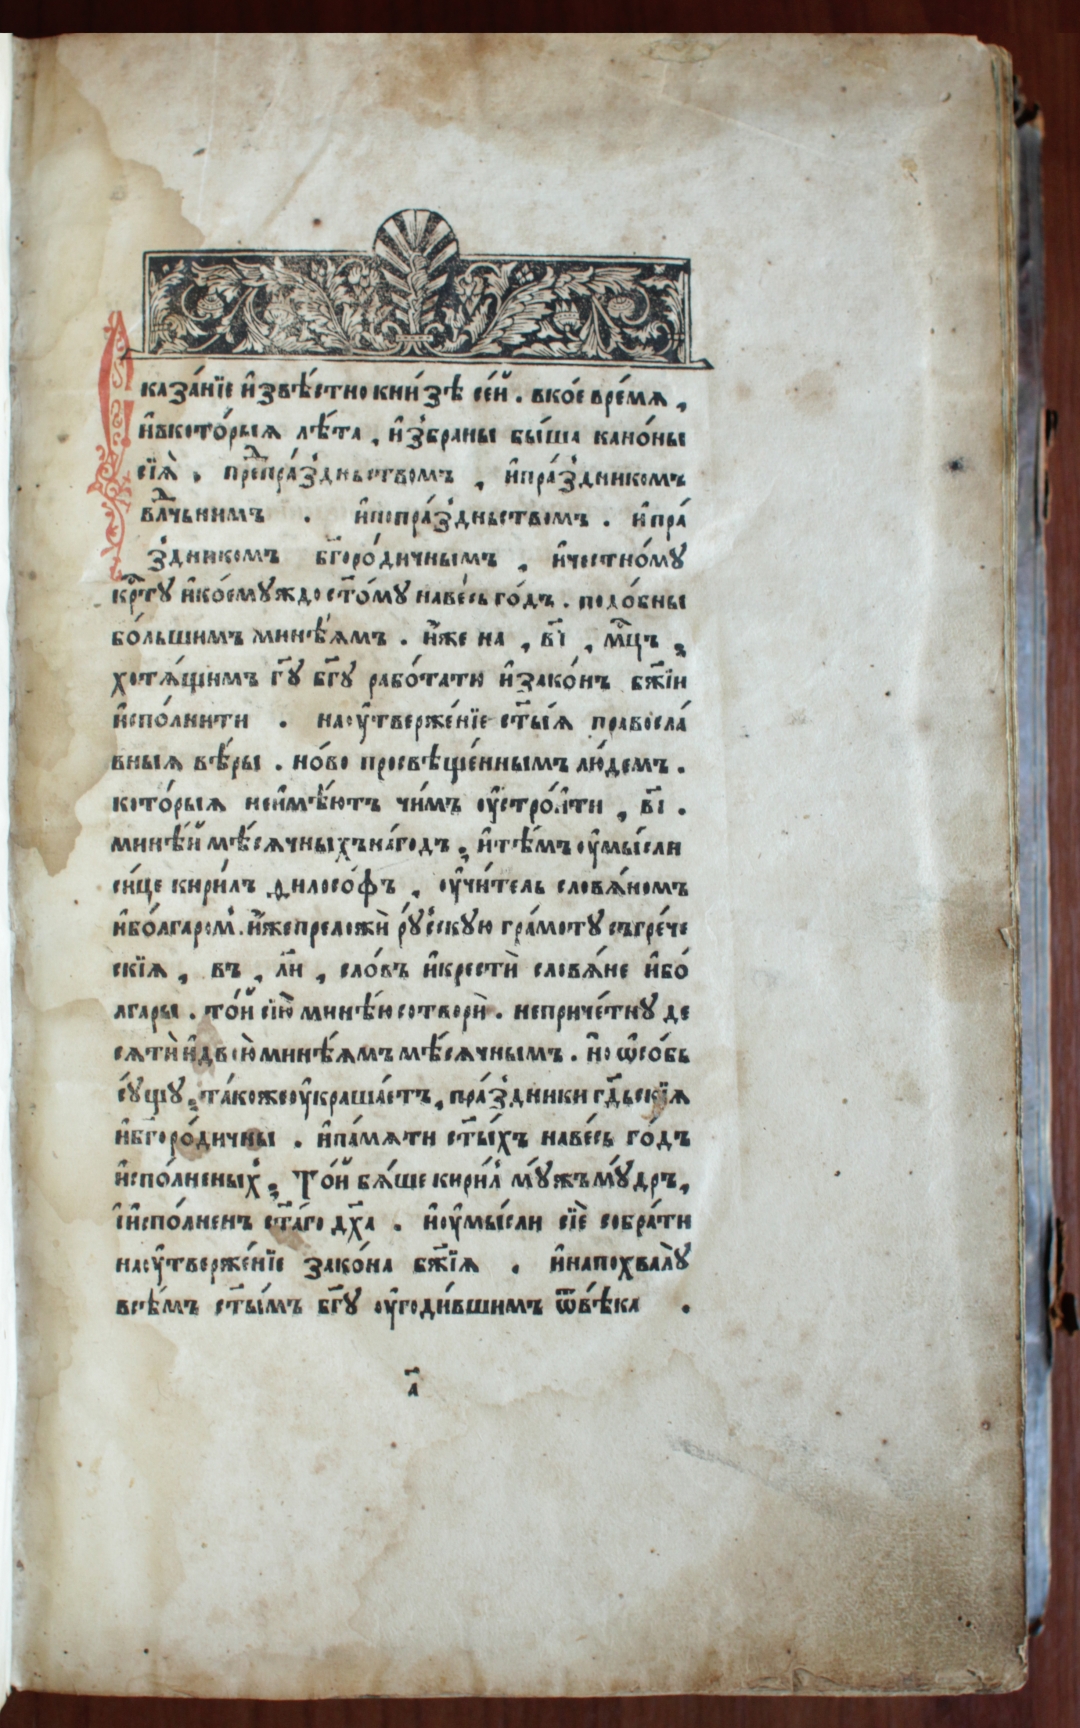 Сказа́нїе и҆звѣ́стно кни́зѣ се́й . вко́е вре́мѧ ,
и҆вкото́рыѧ лѣ́та , и҆з̾браны бы́ша кано́ны
сїѧ̀ , пред̾пра́з̾дньством̾ъ , и҆пра́з̾дникомъ
влⷣчьнимъ . и҆попра́з̾дньствомъ . и҆пра́
з̾дникомъ бг҃оро́дичнымъ , и҆чⷭестно́му
крⷭ҇ту и҆ко́емуждо ст҃о́му наве́сь го́дъ . подо́бны
бо́льшимъ мине́ѧмъ . и҆́же на , в҃і , мцⷭ҇ъ ,
хотѧ́щимъ гꙋ҃ бг҃у рабо́тати и҆зако́нъ бж҃їи
и҆спо́лнити . наѹ҆твержéнїе ст҃ы́ѧ правосла́
вныѧ вѣ́ры . но́во просвѣще́ннымъ лю́демъ .
кото́рыѧ неи҆мѣ́ютъ чи́мъ ѹ҆стро́ити , в҃і .
мине́й мѣ́сѧчныхъ на́годъ , и҆тѣ́мъ ѹ҆мы́сли
си́це кири́лъ филосо́фъ , ѹ҆чи́тель словѧ́номъ
и҆бо́лгаром̾ . и҆́же преложѝ рꙋ́сскую гра́моту съгре́че
скїѧ , въ , л҃и , сло́въ и҆крестѝ словѧ́не и҆бо́
лгары . то́й сїю̀ минѣ́ю сотворѝ . непричéтну де
сѧтѝ и҆двою̀ минѣ́ѧмъ мѣ́сѧчнымъ . но ѡ҆со́бь
сꙋ́щу , та́коже ѹ҆краша́етъ , пра́з̾дники гдⷭ҇ьскїѧ
и҆бг҃оро́дичны . и҆па́мѧти ст҃ы́хъ наве́сь го́дъ
и҆спо́лненых̾ , То́й бѧ́ше кири́л̾ мꙋ́жъ мꙋ́дръ ,
і҆и҆спо́лненъ ст҃а́го дх҃а . и҆ѹ҆мы́сли сїѐ собра́ти
наѹ҆твержéнїе зако́на бж҃їѧ . и҆напохвалꙋ̀
всѣ́мъ ст҃ы́мъ бг҃у ѹ҆годи́вшимъ ѿвѣ́ка .
а҃